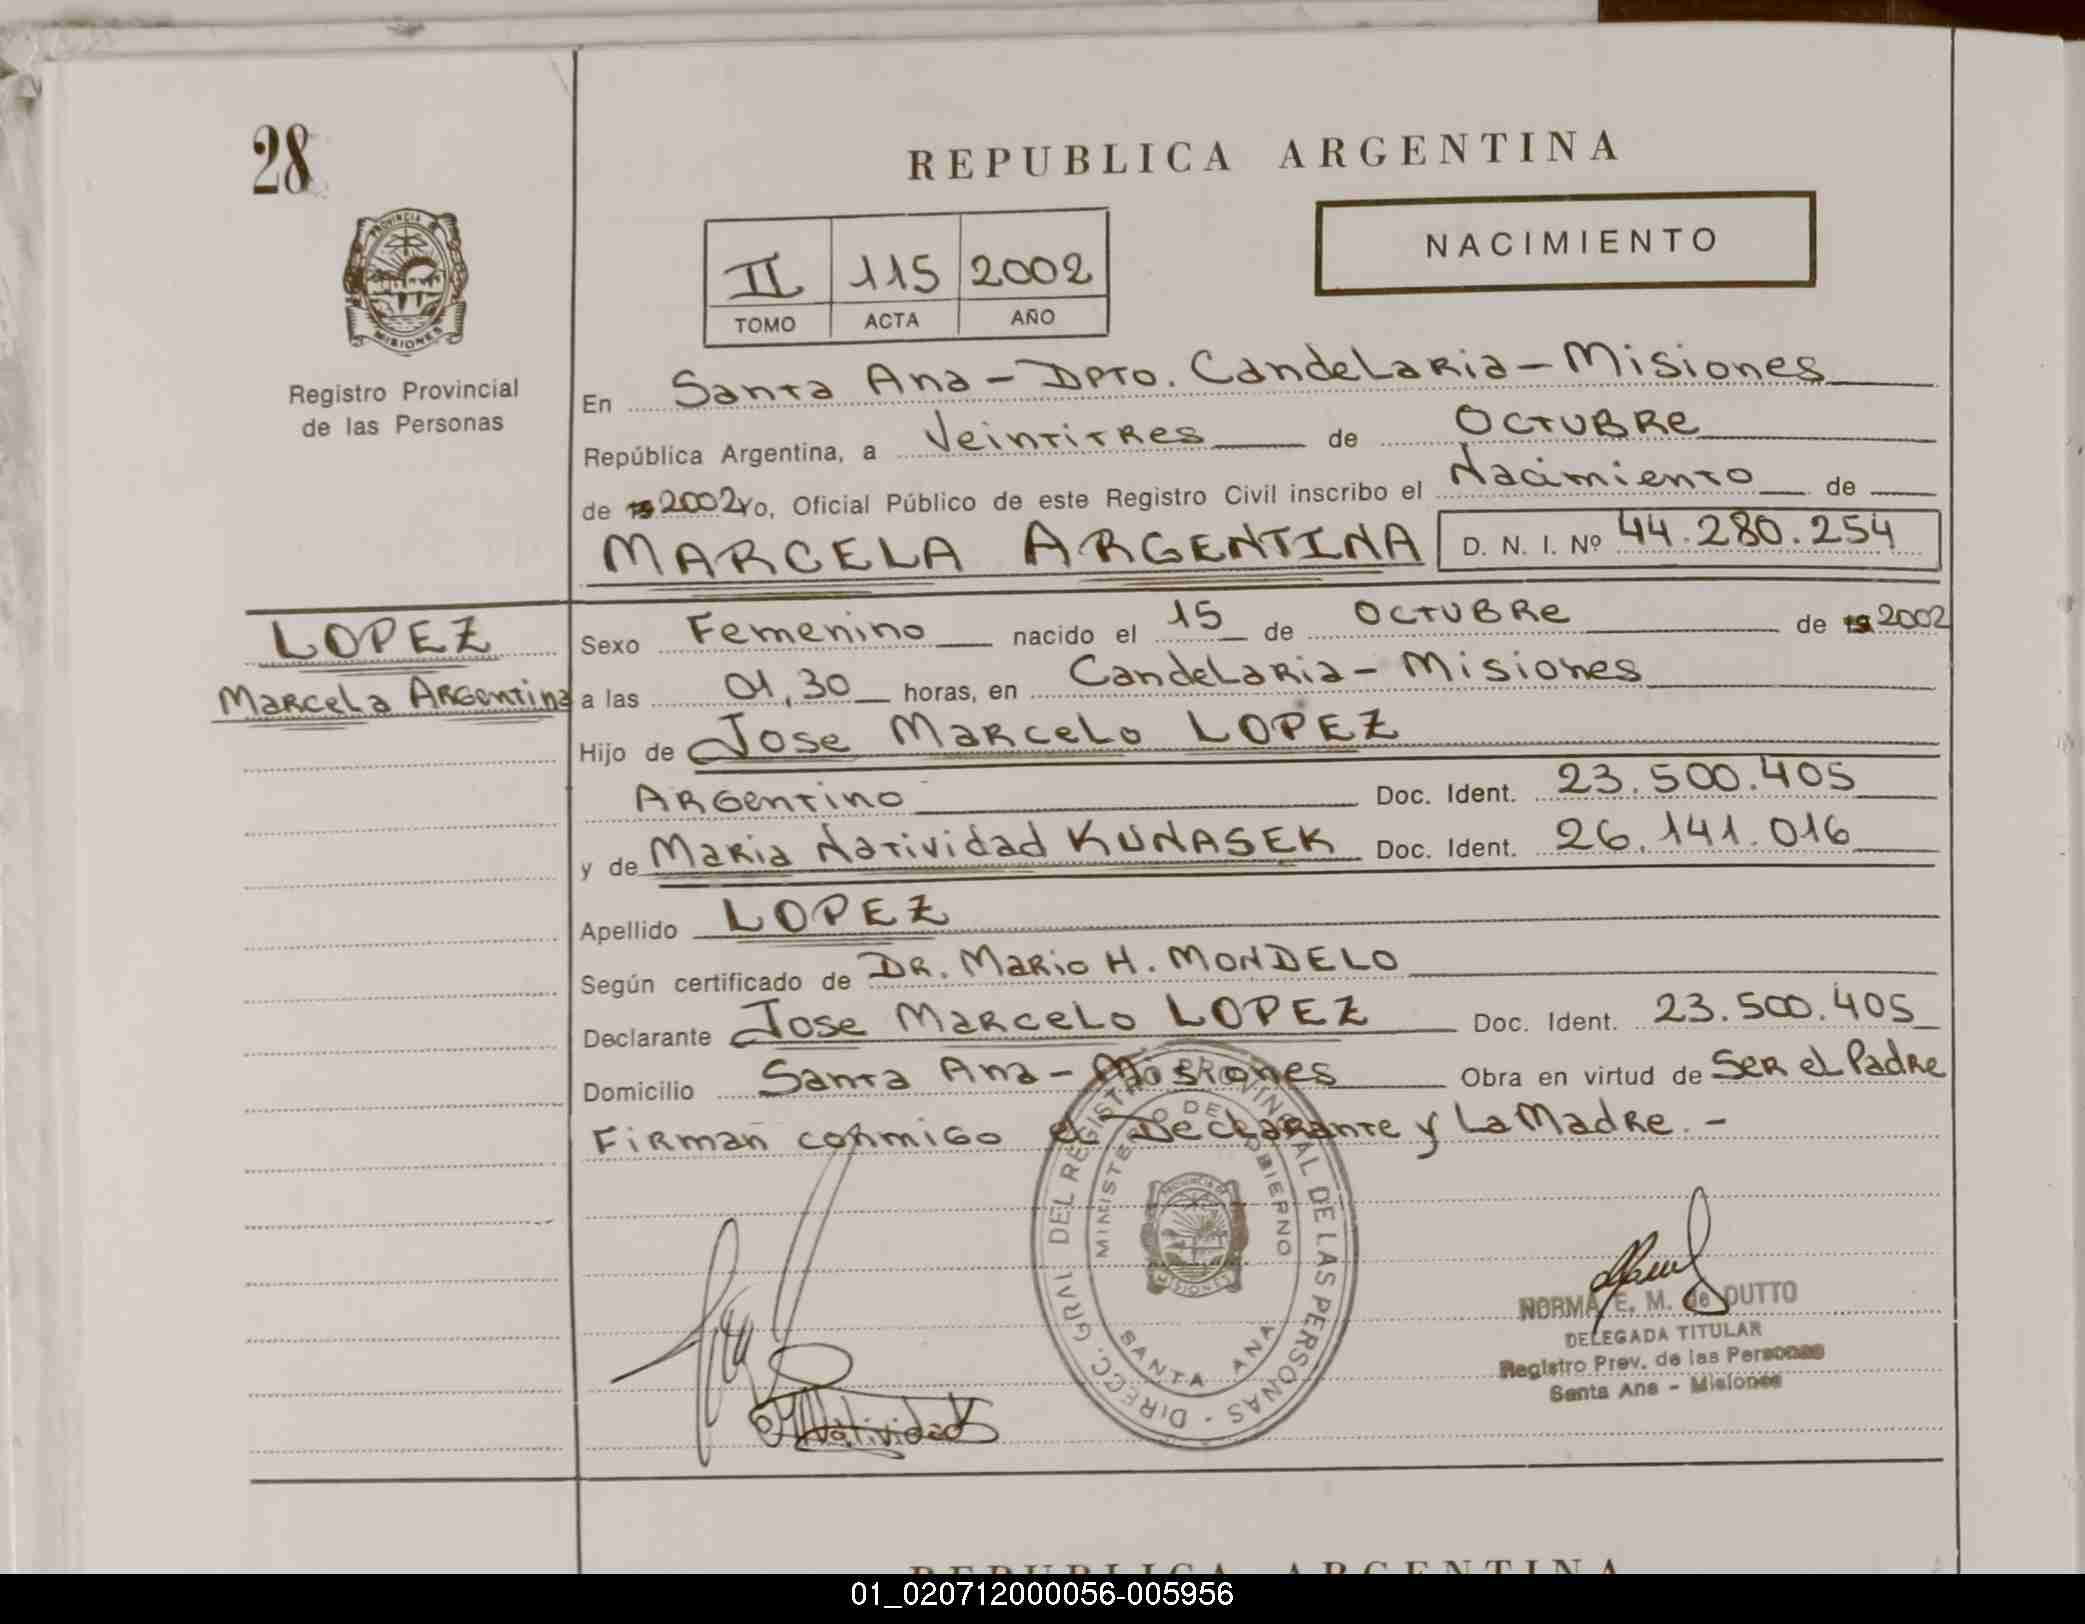 28
REPUBLICA ARGENTINA
NACIMIENTO
II 115 2002
TOMO ACTA AÑO
PROVINCIA DE
MISIONES
Registro Provincial
de las Personas
En Santa Ana - Dpto. Candelaria - Misiones
República Argentina, a Veintitres de Octubre
de 19 2002 Yo, Oficial Público de este Registro Civil inscribo el Nacimiento de
MARCELA ARGENTINA D. N. I. Nº 44.280.254
LOPEZ
Marcela Argentina
Sexo Femenino nacido el 15 de Octubre de 19 2002
a las 01,30 horas, en Candelaria - Misiones
Hijo de Jose Marcelo LOPEZ
Argentino Doc. Ident. 23.500.405
y de Maria Natividad KUNASEK Doc. Ident. 26.141.016
Apellido LOPEZ
Según certificado de DR. Mario H. MONDELO
Declarante Jose Marcelo LOPEZ Doc. Ident. 23.500.405
Domicilio Santa Ana - Misiones Obra en virtud de Ser el Padre
Firman conmigo el Declarante y La Madre. -
DIRECC. GRAL. DEL REGISTRO PROVINCIAL DE LAS PERSONAS -
MINISTERIO DE GOBIERNO
PROVINCIA DE
MISIONES
SANTA ANA
Natividad K
NORMA E. M. de DUTTO
DELEGADA TITULAR
Registro Prov. de las Personas
Santa Ana - Misiones
REPUBLICA ARGENTINA
01_020712000056-005956